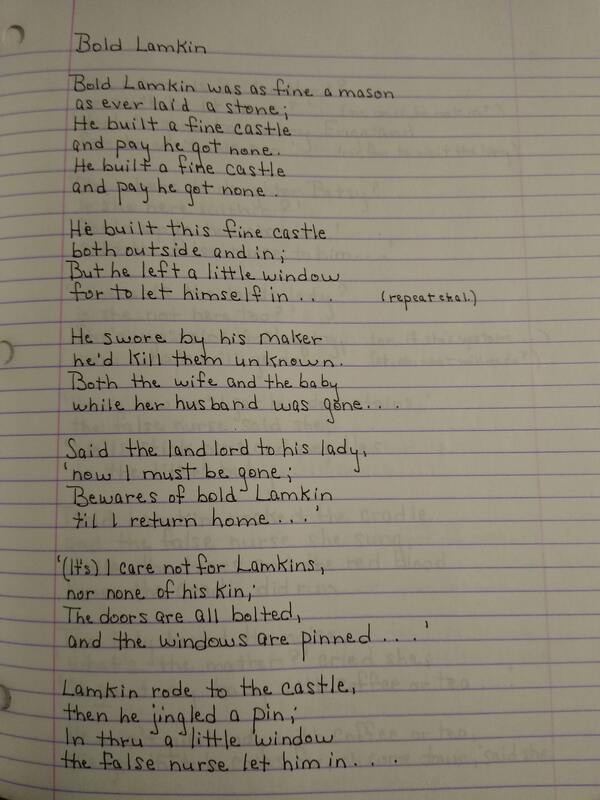 Bold Lamkin
Bold Lamkin was as fine a mason
as ever laid a stone;
He built a fine castle
and pay he got none.
He built a fine castle
and pay he got none.
He built this fine castle
both outside and in;
But he left a little window
for to let himself in ... (repeat e.t.al.)
He swore by his maker
he'd kill them unknown.
Both the wife and the baby
while her husband was gone...
Said the land lord to his lady,
'now I must be gone;
Bewares of bold Lamkin
til I return home ...'
'(It's) I care not for Lamkins,
nor none of his kin;
The doors are all bolted,
and the windows are pinned ...'
Lamkin rode to the castle,
then he jingled a pin;
In thru a little window
the false nurse let him in...